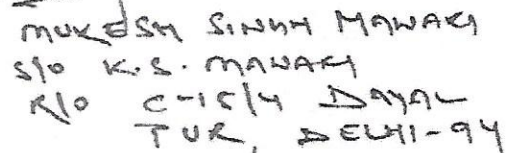 MUKESH SINGH MAWARI
S/O K.S. MAWARI
R/O C-15/4 DAYAL
PUR, DELHI-94